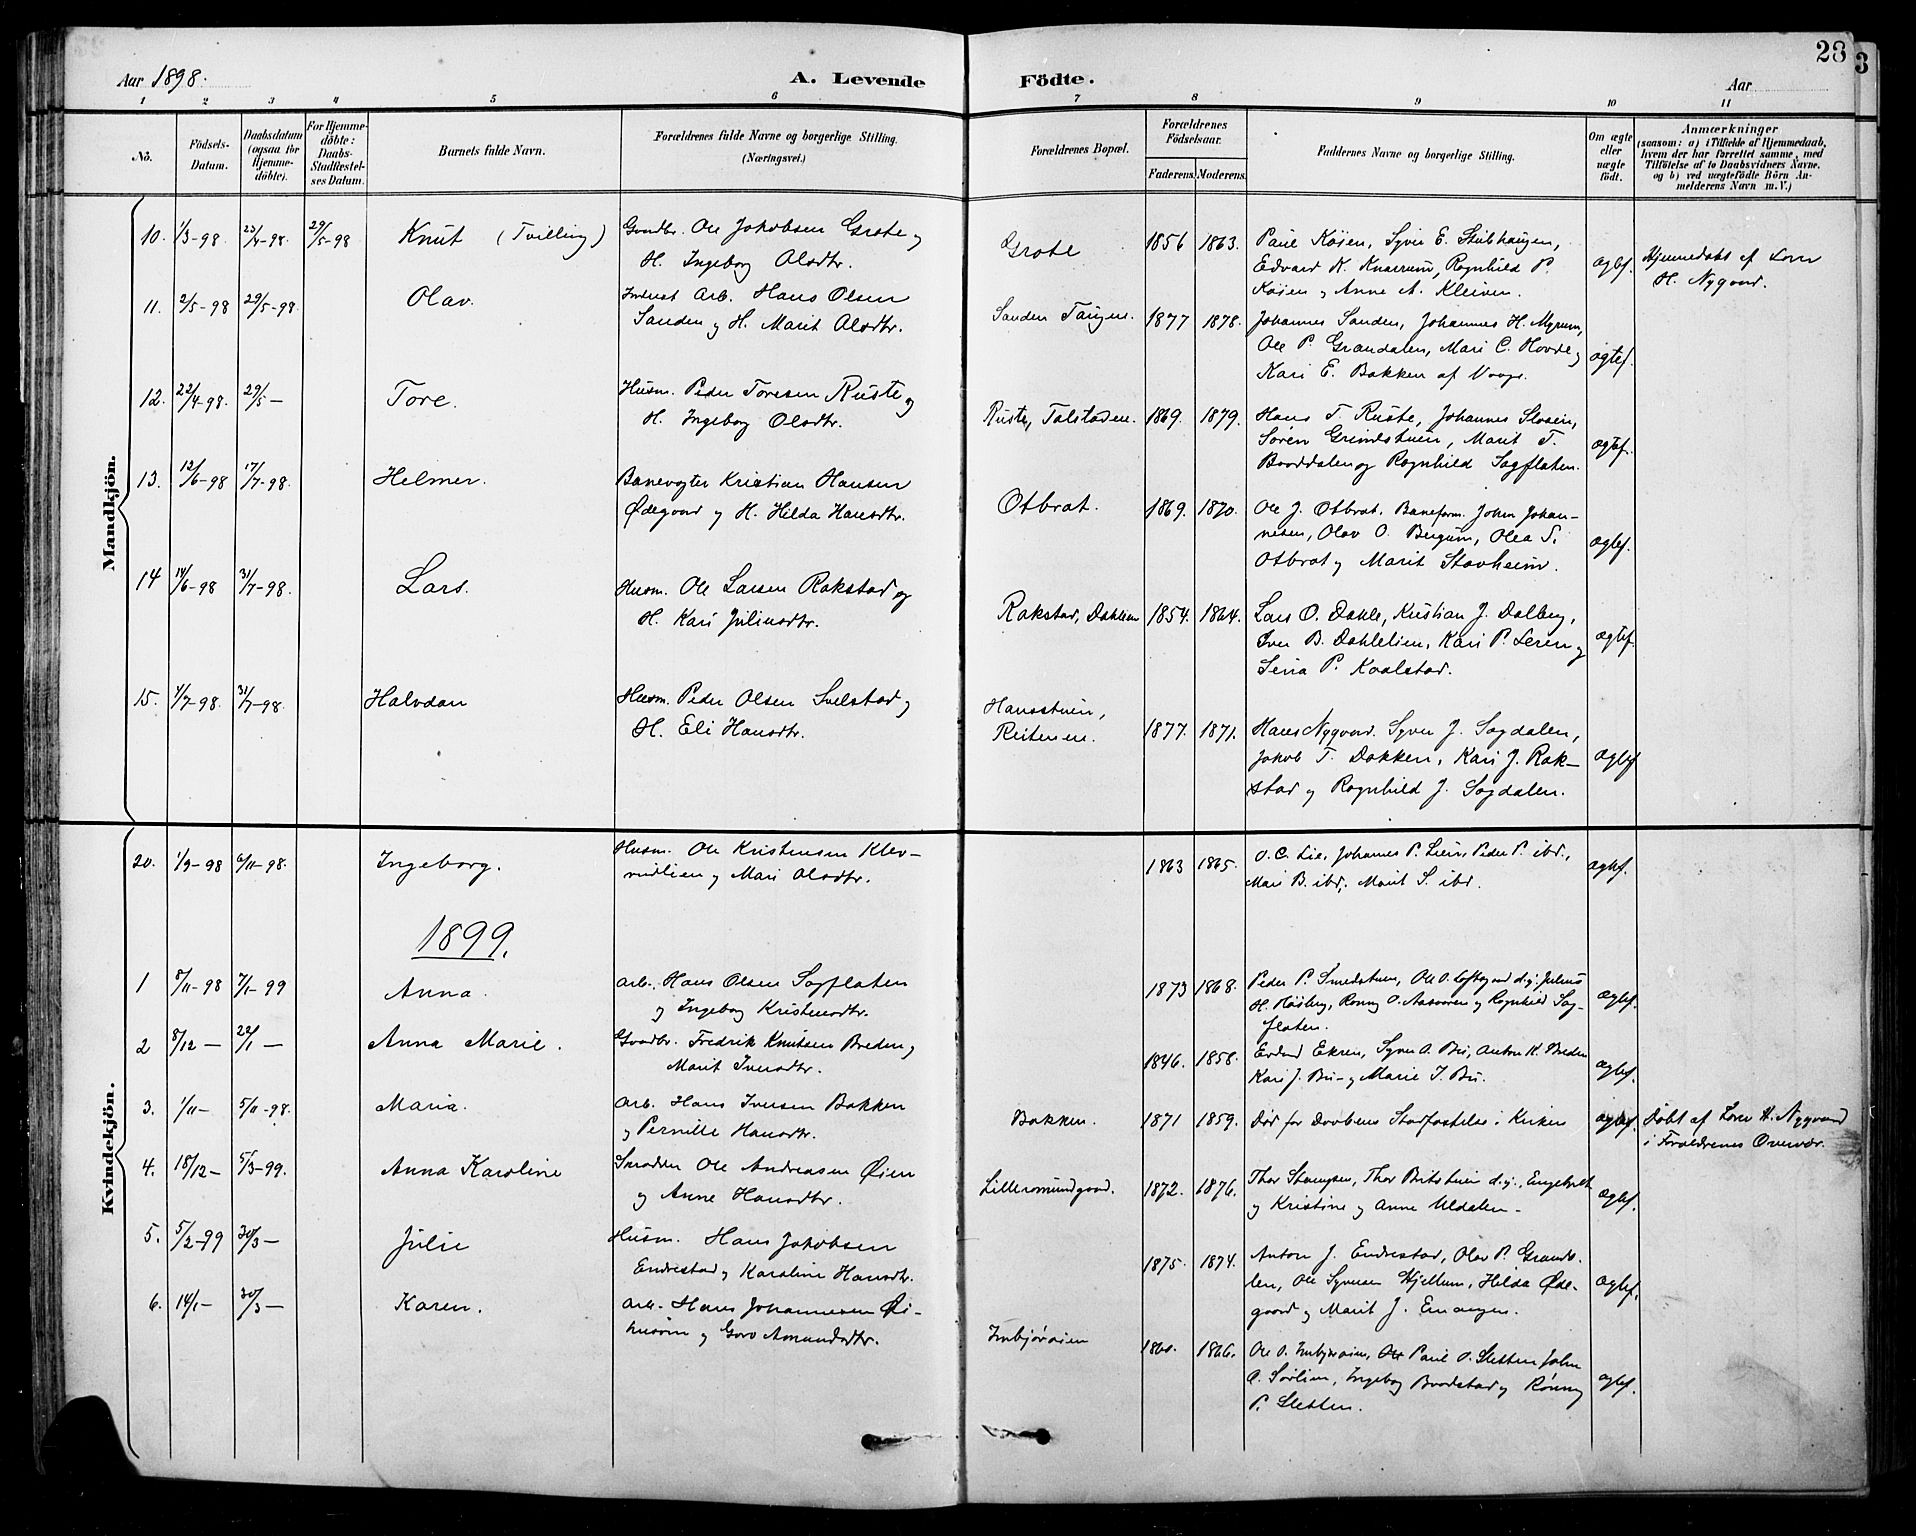 28
3
Aar 1898.
A. Levende
Födte.
Aar
1 2 3 4 5 6 7 8 9 10 11
No.
Födsels-
Datum.
Daabsdatum
(ogsaa for
Hjemme-
döbte).
For Hjemme-
döbte:
Daabs-
Stadfestel-
ses Datum.
Barnets fulde Navn.
Forældrenes fulde Navne og borgerlige Stilling.
(Næringsvei.)
Forældrenes Bopæl.
Forældrenes
Födselsaar.
Faderens. Moderens.
Faddernes Navne og borgerlige Stilling.
Om ægte
eller
uægte
födt.
Anmærkninger
(saasom: a) i Tilfælde af Hjemmedaab,
hvem der har forrettet samme, med
Tilföielse af to Daabsvidners Navne.
og b) ved uægtefödte Börn An-
melderens Navn m.V.)
Mandkjön.
10. 1/3-98. 23/4-98. 29/5-98 Knut (Tvilling)
Gaardbr. Ole Jakobsen Grote og
H. Ingeborg Olsdtr.
Grote 1856 1863.
Paul Köien, Syver E. Stubhaugen,
Edvard K. Knarrum, Ragnhild P.
Köien og Anne A. Kleiven.
ægtef.
Hjemmedöbt af Lærer
H. Nygaard.
11. 2/5-98 29/5-98. Olav.
Indust Arb. Hans Olsen
Sanden og H. Marit Olsdtr.
Sanden Tangen. 1877 1878.
Johannes Sanden, Johannes H. Myrum,
Ole P. Grandalen, Mari C. Hovde og
Kari E. Bakken af Vaage.
ægtef.
12. 22/4-98. 29/5- Tore.
Husm. Peder Toresen Ruste og
H. Ingeborg Olsdtr.
Ruste, Tolstaden. 1869. 1879.
Hans T. Ruste, Johannes Slaaen,
Søren Grindstuen, Marit T.
Braddalen og Ragnhild Sagflaten.
ægtef.
13. 12/6-98 17/7-98. Helmer.
Banevogter Kristian Hansen
Ødegaard og H. Hilda Hansdtr.
Otbrat. 1869. 1870.
Ole J. Otbrat. Baneform. John Johan-
nesen, Olav O. Bergum, Olea T.
Otbrat og Marit Stavheim.
ægtef.
14 14/6-98 31/7-98. Lars.
Husm. Ole Larsen Rakstad og
H. Kari Julinsdtr.
Rakstad, Dahlen 1854. 1864.
Lars O. Dahle, Kristian J. Dalberg,
Iver B. Dahlelien, Kari P. Leren og
Sena P. Kaalstad.
ægtef.
15. 1/7-98. 31/7-98. Halvdan
Husm. Peder Olsen Svelstad og
H. Eli Hansdtr.
Hansstuen,
Reitenen. 1877. 1871.
Hans Nygaard. Syver J. Sagdalen,
Jakob T. Dakken, Kari J. Rak-
stad og Ragnhild J. Sagdalen.
ægtef
Kvindekjön.
20. 1/9-98 6/11-98. Ingeborg.
Husm. Ole Kristensen Klev-
rudlien og Mari Olsdtr.
1863 1865.
O. C. Lie, Johannes P. Lien, Peder P. ibd.,
Mari B. ibd, Marit S. ibd.
ægtef.
1899.
1 8/11-98 7/1-99 Anna.
Arb. Hans Olsen Sagflaten
og Ingeborg Kristensdtr.
1873 1868.
Peder P. Smedstuen, Ole O. Loftsgard d.y. Julius
H. Høiberg, Rønnog O. Aasaaren og Ragnhild Sag-
flaten.
ægtef.
2 8/12- 22/1- Anna Marie.
Gaardbr. Fredrik Knutsen Breden og
Marit Iversdtr.
1846. 1858.
Erland Ekren, Syver A. Bu, Anton K. Breden
Kari J. Bu- og Marie I. Bu.
ægtef.
3. 1/11- 5/11-98. Maria.
Arb. Hans Iversen Bakken
og Pernille Hansdtr.
Bakken. 1871 1859.
Død før Daabens Stadfæstelse i Kirken
ægtef.
Døbt af Lærer H. Nygaard
i Forældrenes Overvær.
4. 18/12- 5/3-99. Anna Karoline
Smedsv Ole Andreasen Øien
og Anne Hansdtr.
Lilleromundgaard. 1872. 1876.
Thor Stampen, Thor Britstuen d.y., Engebret
og Kristine og Anne Uldalen -
ægtef.
5. 5/2-99 30/3- Julie
Husm. Hans Jakobsen
Endrestad og Karoline Hansdtr.
1875. 1874.
Anton J. Endrestad, Olav P. Granda-
len, Ole Syversen Hjellum, Hilda Øde-
gaard og Marit J. Enangen.
ægtef.
6. 14/1- 30/3- Karen.
Arb. Hans Johannesen Øi-
husviin og Goro Amundsdtr.
Imbjøraien 1860. 1866.
Ole O. Imbjøraien, Paul O. Sletten John
O. Sørlien, Ingeborg Braastad og Rønnog
P. Sletten.
ægtef.